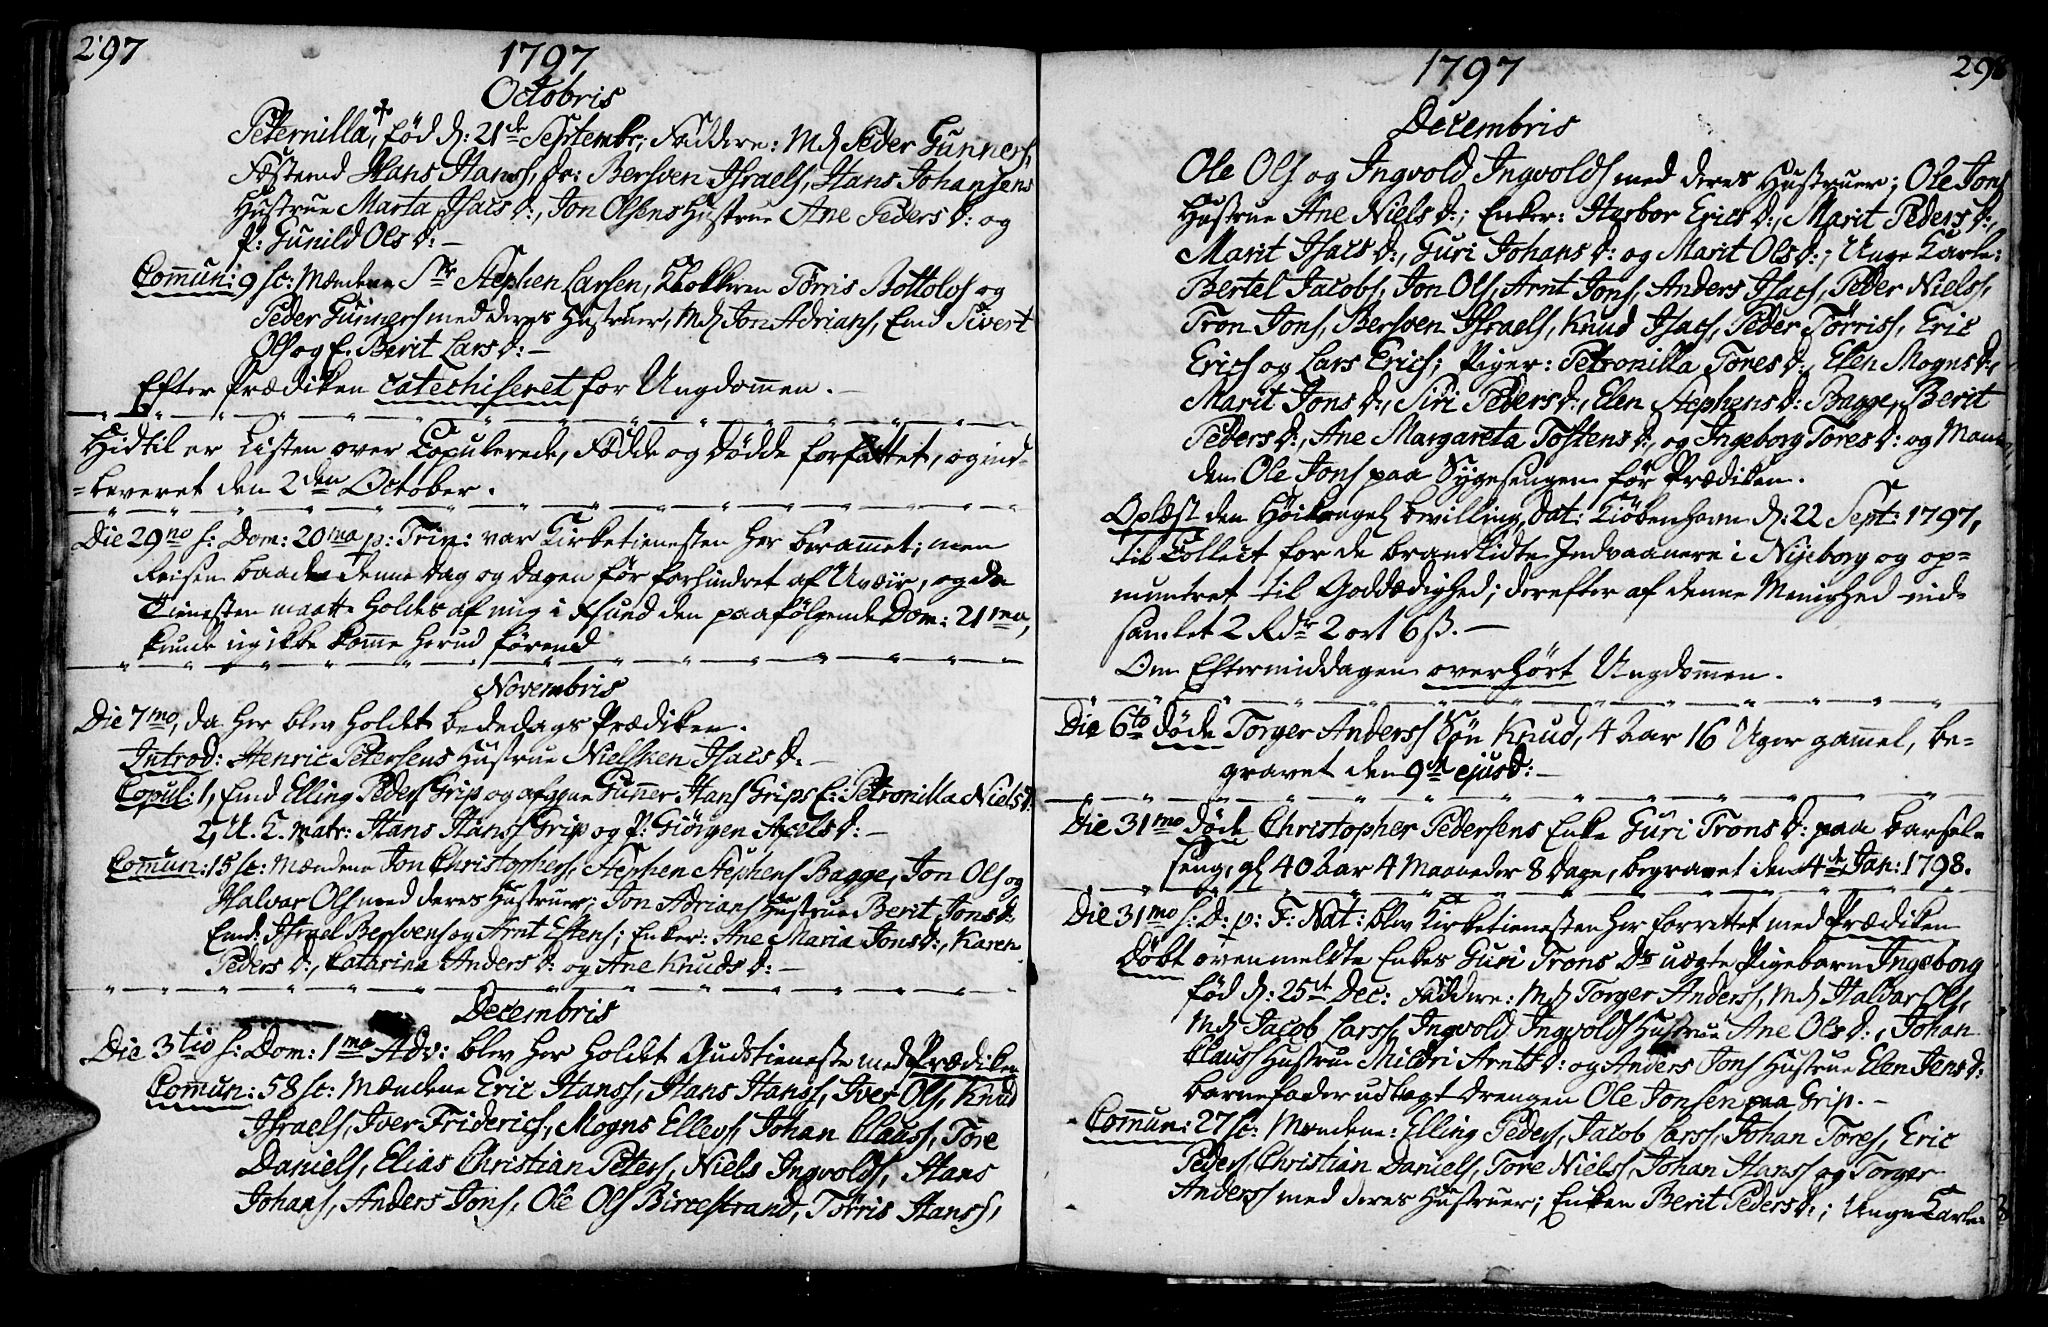 297
1797
Octobris
Peternilla, fød d: 21de Septembr; Faddere: Md Peder Gunners,
Festemd Hans Hanss, Dr: Bersven Israels, Hans Johansens
Hustrue Marta Isacs d:, Jon Olsens Hustrue Ane Peders d: og
P: Gunild Ols d: —
Commun: 9 sc: Mændene Sr Stephen Larsen, Klokkeren Tørris Bottolvs og
Peder Gunners med deres Hustruer, Md Jon Adrians, Emd Sivert
Ols og E. Berit Lars d: —
Efter Prædiken catechiseret for Ungdommen. —
Hidtil er Listen over Copulerede, Fødde og Dødde forfattet, og ind-
-leveret den 2den October.
Die 29no s: Dom: 20ma p: Trin: var Kirketienesten her berammet; men
Reisen baade denne Dag og dagen før forhindret af Uveir, og da
Tienesten maatte holdes af mig i Xsund den paafølgende Dom: 21ma,
kunde ieg ikke komme herud førend
Novembris
Die 7mo, da her blev holdt bededags Prædiken.
Introd: Henric Petersens Hustrue Nielsken Isacs d. —
Copul: 1, Emd Elling Peders Grip og afgne Gunner Hans Grips E: Petronilla Niels d.
2, U. K. matr: Hans Hanss Grip og P: Giørgen Axels d: —
Commun: 15 sc: Mændene Jon Christophers, Stephen Stephens Bagge, Jon Ols og
Halvar Ols med deres Hustruer; Jon Adrians Hustrue Berit Jons d:
Emd: Israel Bersvens og Arnt Estens; Enker: Ane Maria Jons d:, Karen
Peders d:, Catarina Anders d: og Ane Knuds d: —
Decembris
Die 3tio s: Dom: 1ma Adv: blev her holdt Gudstieneste med Prædiken
Commun: 58 sc: Mændene Eric Hanss, Hans Hanss, Iver Ols, Knud
Israels, Iver Friderics, Mogns Ellevs, Johan Clauss, Tore
Daniels, Elias Christian Peters, Niels Ingvolds, Hans
Johans, Anders Jons, Ole Ols Bircestrand, Tørris Hanss,
298
1797
Decembris
Ole Ols og Ingvold Ingvolds med deres Hustruer; Ole Jons
Hustrue Ane Niels d:; Enker: Harbor Erics d:, Marit Peders d:,
Marit Isacs d:, Guri Johans d: og Marit Ols d:; Unge Karle:
Bertel Jacobs, Jon Ols, Arnt Jons, Anders Isacs, Peder Niels,
Tron Jons, Bersven Israels, Knud Isacs, Peder Tørriss, Eric
Erics og Lars Erics; Piger: Petronilla Tores d:, Elen Mogns d:,
Marit Jons d:, Siri Peders d:, Elen Stephens d: Bagge, Berit
Peders d:, Ane Margareta Tostens d:, og Ingeborg Tores d: og Man-
den Ole Jons paa Sygesengen før Prædiken.
Oplæst den Høikongel bevilling, dat: Kiøbenhavn d: 22 Sept: 1797,
til Collect for de brandlidte Indvaanere i Nyeborg og op-
muntret til Goddædighed; derefter af denne Menighed ind-
samlet 2 Rdr 2 ort 6 ß. —
Om Eftermiddagen overhørt Ungdommen.
Die 6to døde Torger Anderss Søn Knud, 4 Aar 16 Uger gammel, be-
gravet den 9d ejusd: —
Die 31mo døde Christopher Pedersens Enke Guri Trons d: paa barsel-
seng, gl 40 Aar 4 Maaneder 8 dage, begravet den 4de Jan: 1798.
Die 31mo s: D: p: F: Nat: blev Kirketienesten her forrettet med Prædiken
Døbt ovenmeldte Enkes Guri Trons Ds uægte Pigebarn Ingeborg
fød d: 25d Dec: Faddere: Md Torger Anderss, Md Haldvar Ols,
Md Jacob Larss, Ingvold Ingvolds Hustrue Ane Ols d:, Johan
Clauss Hustrue Mildri Arnts d: og Anders Jons Hustrue Elen Jens d:
barnefader udlagt Drengen Ole Jonsen paa Grip. —
Commun: 27 sc: Mændene: Elling Peders, Jacob Larss, Johan Tores, Eric
Peders, Christian Daniels, Tore Niels, Johan Hanss og Torger
Anderss med deres Hustruer; Enken Berit Peders d:; Unge Karle: